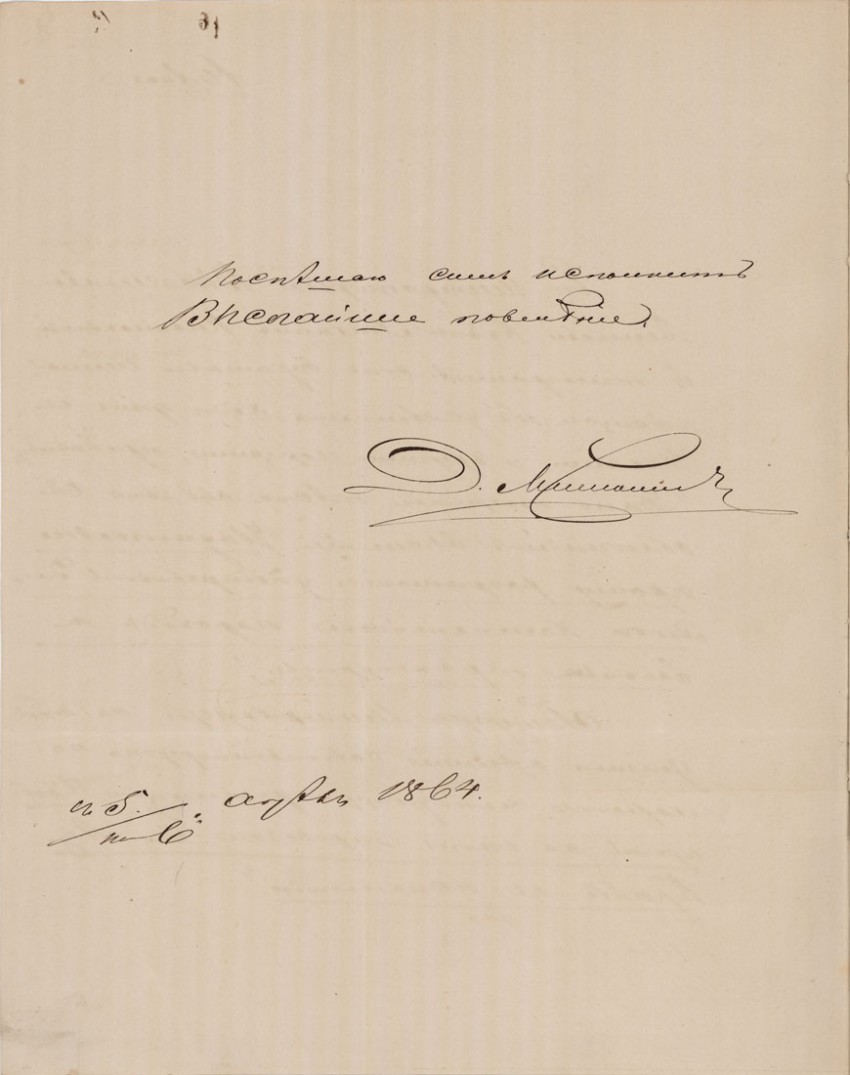 Поспѣшаю симъ исполнить
Высочайшее повелѣніе.
Д. Милютинъ
съ 5.
на 6.
апрѣля 1864.